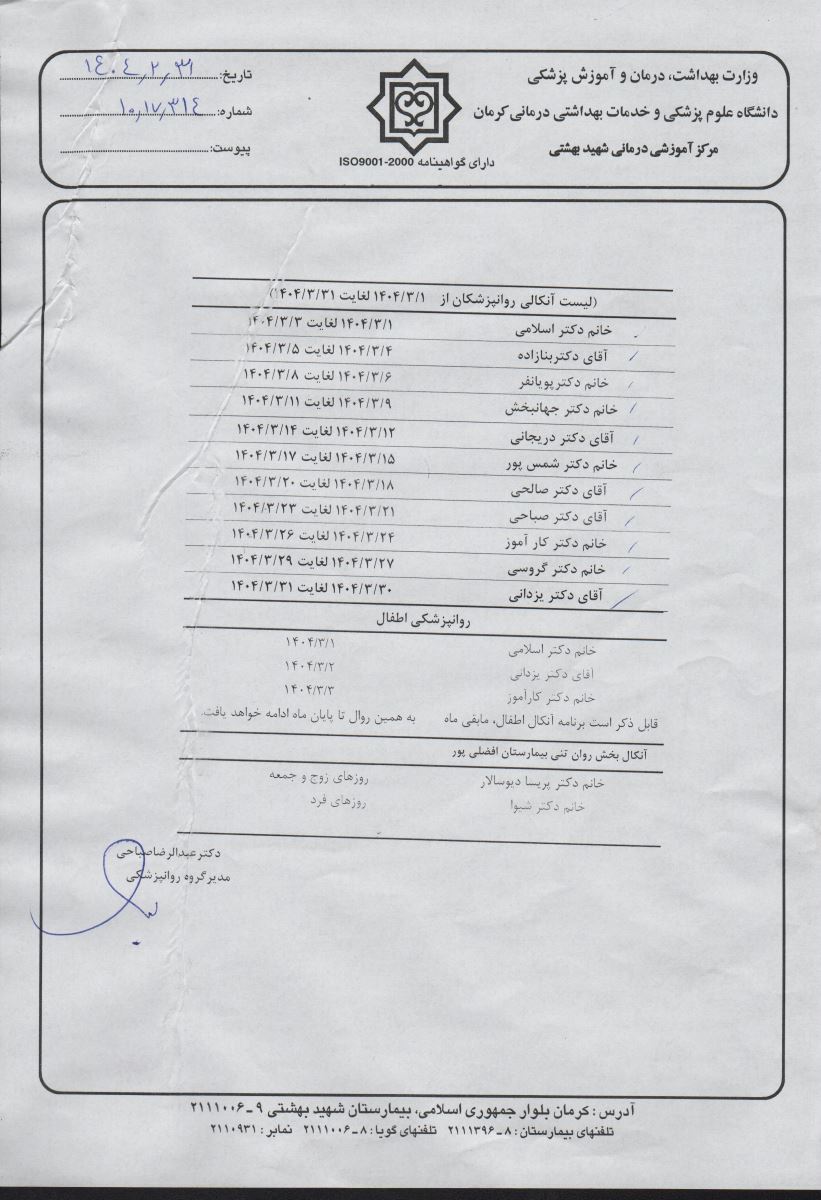 وزارت بهداشت، درمان و آموزش پزشکی
دانشگاه علوم پزشکی و خدمات بهداشتی درمانی کرمان
مرکز آموزشی درمانی شهید بهشتی
دارای گواهینامه ISO9001-2000
تاریخ: ۱۴۰۴٫۲٫۳۱
شماره: ۱۰٫۱۷٫۳۱۴
پیوست:
(لیست آنکالی روانپزشکان از ۱۴۰۴/۳/۱ لغایت ۱۴۰۴/۳/۳۱)
خانم دکتر اسلامی ۱۴۰۴/۳/۱ لغایت ۱۴۰۴/۳/۳
آقای دکتربنازاده ۱۴۰۴/۳/۴ لغایت ۱۴۰۴/۳/۵
خانم دکترپویانفر ۱۴۰۴/۳/۶ لغایت ۱۴۰۴/۳/۸
خانم دکتر جهانبخش ۱۴۰۴/۳/۹ لغایت ۱۴۰۴/۳/۱۱
آقای دکتر دریجانی ۱۴۰۴/۳/۱۲ لغایت ۱۴۰۴/۳/۱۴
خانم دکتر شمس پور ۱۴۰۴/۳/۱۵ لغایت ۱۴۰۴/۳/۱۷
آقای دکتر صالحی ۱۴۰۴/۳/۱۸ لغایت ۱۴۰۴/۳/۲۰
آقای دکتر صباحی ۱۴۰۴/۳/۲۱ لغایت ۱۴۰۴/۳/۲۳
خانم دکتر کار آموز ۱۴۰۴/۳/۲۴ لغایت ۱۴۰۴/۳/۲۶
خانم دکتر گروسی ۱۴۰۴/۳/۲۷ لغایت ۱۴۰۴/۳/۲۹
آقای دکتر یزدانی ۱۴۰۴/۳/۳۰ لغایت ۱۴۰۴/۳/۳۱
روانپزشکی اطفال
خانم دکتر اسلامی ۱۴۰۴/۳/۱
آقای دکتر یزدانی ۱۴۰۴/۳/۲
خانم دکتر کارآموز ۱۴۰۴/۳/۳
قابل ذکر است برنامه آنکال اطفال، مابقی ماه به همین روال تا پایان ماه ادامه خواهد یافت.
آنکال بخش روان تنی بیمارستان افضلی پور
خانم دکتر پریسا دیوسالار روزهای زوج و جمعه
خانم دکتر شیوا روزهای فرد
دکترعبدالرضاصباحی
مدیرگروه روانپزشکی
آدرس : کرمان بلوار جمهوری اسلامی، بیمارستان شهید بهشتی ۹ ـ ۲۱۱۱۰۰۶
تلفنهای بیمارستان : ۸ ـ ۲۱۱۱۳۹۶ تلفنهای گویا : ۸ ـ ۲۱۱۱۰۰۶ نمابر : ۲۱۱۰۹۳۱